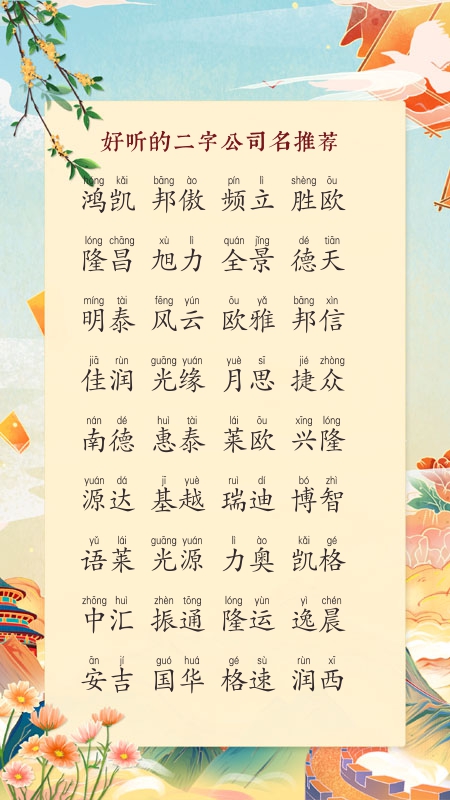 好听的二字公司名推荐
hóng kǎi bāng ào pín lì shèng ōu
鸿凯 邦傲 频立 胜欧
lóng chāng xù lì quán jǐng dé tiān
隆昌 旭力 全景 德天
míng tài fēng yún ōu yǎ bāng xìn
明泰 风云 欧雅 邦信
jiā rùn guāng yuán yuè sī jié zhòng
佳润 光缘 月思 捷众
nán dé huì tài lái ōu xīng lóng
南德 惠泰 莱欧 兴隆
yuán dá jī yuè ruì dí bó zhì
源达 基越 瑞迪 博智
yǔ lái guāng yuán lì ào kǎi gé
语莱 光源 力奥 凯格
zhōng huì zhèn tōng lóng yùn yì chén
中汇 振通 隆运 逸晨
ān jí guó huá gé sù rùn xī
安吉 国华 格速 润西